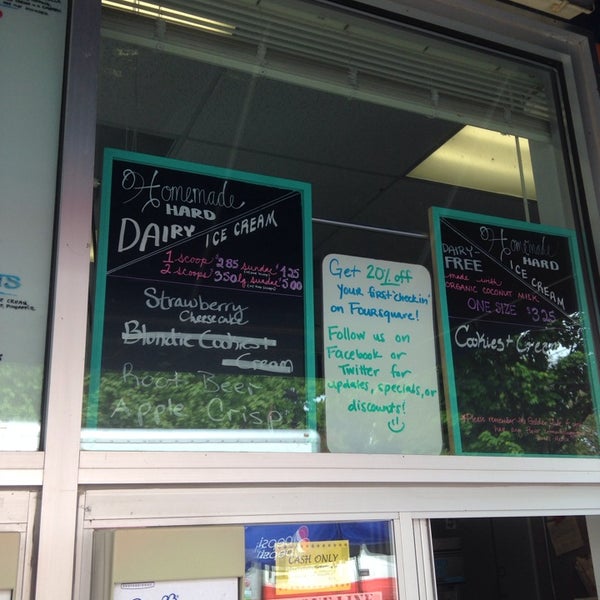 Homemade
HARD
DAIRY ICE CREAM
1 scoop 2.85 sundae 4.25
2 scoops 3.50 lg. sundae 5.00
Strawberry
Cheesecake
Blondie Cookies+
Cream
Root Beer
Apple Crisp
Get 20% off
your first 'check in'
on Foursquare!
Follow us on
Facebook or
Twitter for
updates, specials, or
discounts!
Homemade
HARD
ICE CREAM
DAIRY-
FREE
made with
ORGANIC COCONUT MILK
ONE SIZE $3.25
Cookies + Cream
Please remember
CASH ONLY